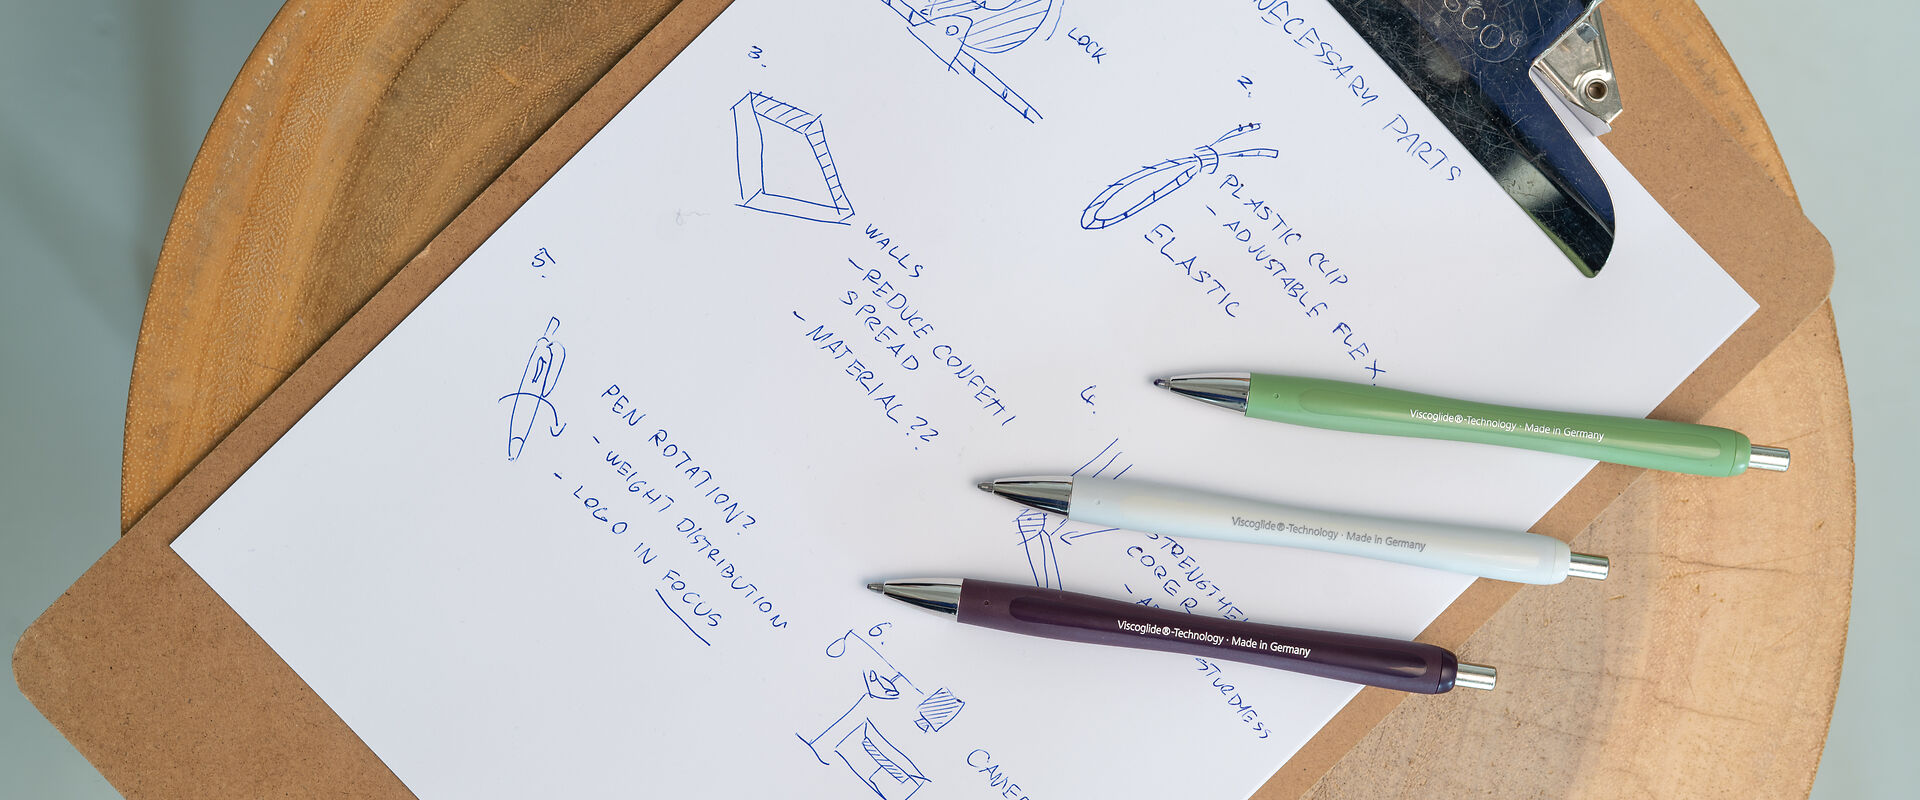 NECESSARY PARTS
LOCK
2.
PLASTIC CLIP
- ADJUSTABLE FLEX.
ELASTIC
3.
WALLS
- REDUCE CONFETTI
SPREAD
- MATERIAL ??
4.
STRENGTHEN
CORE
STURDYNESS
5.
PEN ROTATION?
- WEIGHT DISTRIBUTION
- LOGO IN FOCUS
6.
Viscoglide®-Technology · Made in Germany
Viscoglide®-Technology · Made in Germany
Viscoglide®-Technology · Made in Germany